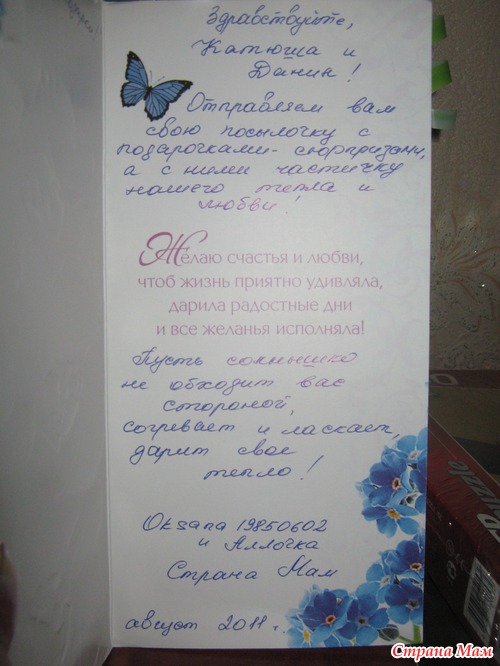 Здравствуйте,
Катюша и
Данил!
Отправляем вам
свою посылочку с
подарочками-сюрпризами,
а с ними частичку
нашего тепла и
любви!
Желаю счастья и любви,
чтоб жизнь приятно удивляла,
дарила радостные дни
и все желанья исполняла!
Пусть солнышко
не обходит вас
стороной,
согревает и ласкает,
дарит свое
тепло!
Oksana 19850602
и Аллочка
Страна Мам
август 2011 г.
Страна Мам